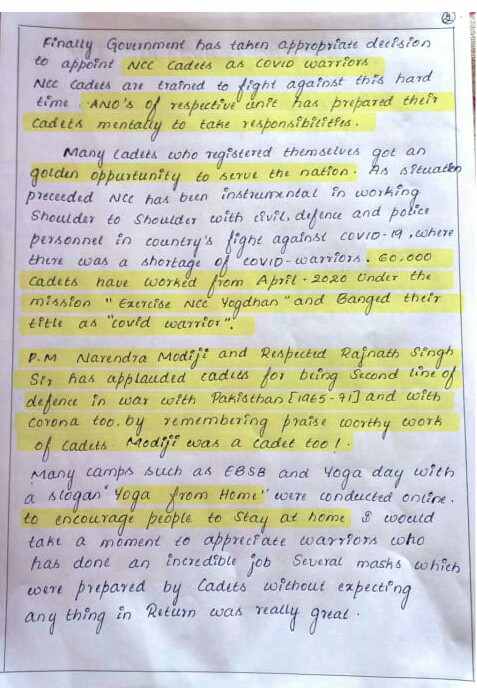 Finally Government has taken appropriate decision
to appoint NCC cadets as COVID warriors.
NCC cadets are trained to fight against this hard
time. ANO's of respective unit has prepared their
cadets mentally to take responsibilities.
Many cadets who registered themselves got an
golden oppurtunity to serve the nation. As situation
preceeded NCC has been instrumental in working
Shoulder to Shoulder with civil, defence and police
personnel in country's fight against COVID-19, where
there was a shortage of COVID-warriors. 60,000
cadets have worked from April-2020 Under the
mission "Exercise NCC Yogdhan" and Banged their
title as "covid warrior".
P.M Narendra Modiji and Respected Rajnath Singh
Sir has applauded cadets for being Second line of
defence in war with Pakisthan [1965-71] and with
corona too. by remembering praise worthy work
of cadets. Modiji was a cadet too!.
Many camps such as EBSB and Yoga day with
a slogan "Yoga from Home" were conducted online.
to encourage people to Stay at home I would
take a moment to appreciate warriors who
has done an incredible job Several masks which
were prepared by Cadets without expecting
any thing in Return was really great.